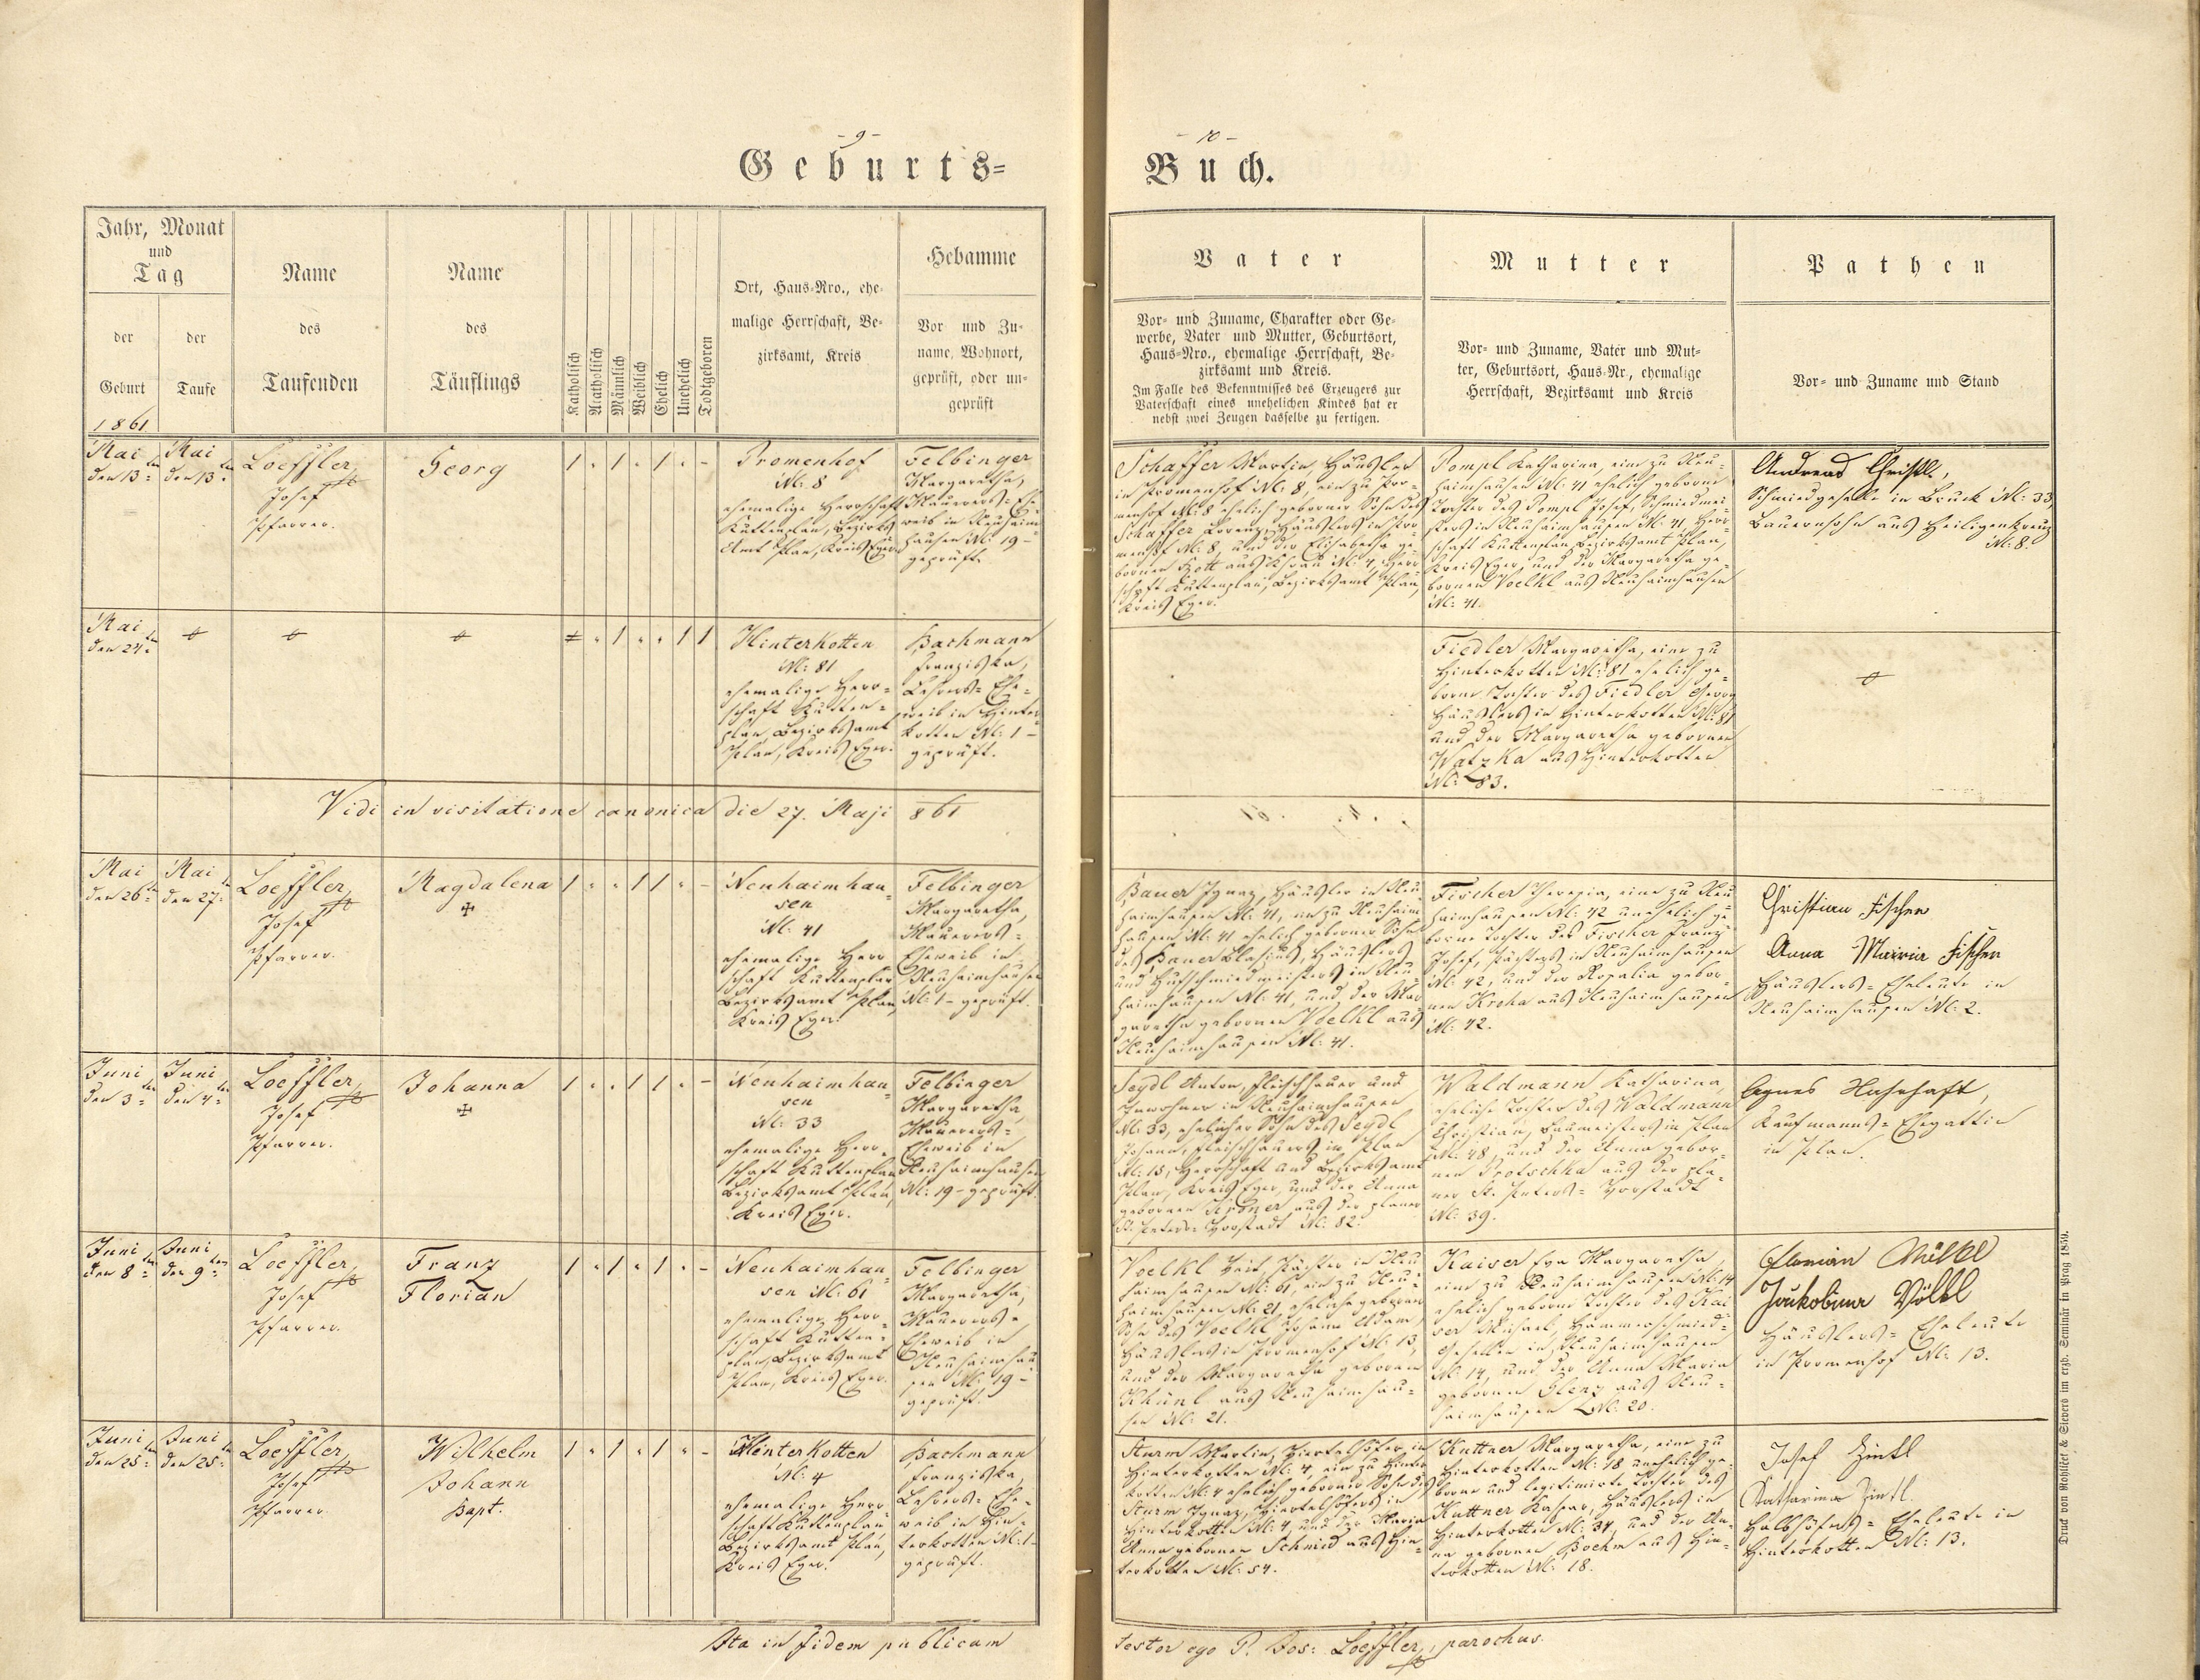 - 9 -
Geburts=
Jahr, Monat
und
Tag
der
Geburt
1861
der
Taufe
Name
des
Taufenden
Name
des
Täuflings
Katholisch
Akatholisch
Männlich
Weiblich
Ehelich
Unehelich
Todtgeboren
Ort, Haus-Nro., ehe-
malige Herrschaft, Be-
zirksamt, Kreis
Hebamme
Vor und Zu-
name, Wohnort,
geprüft, oder un-
geprüft
Mai
den 13ten
Mai
den 13ten
Loeffler
Josef
Pfarrer.
Georg
1 " 1 " 1 " -
Promenhof
N: 8
ehemalige Herrschaft
Kuttenplan, Bezirks
Amt Plan, Kreis Eger
Felbinger
Margaretha,
Mauerers= Ehe
weib in Neuhaim
hausen N: 19 -
geprüft
Mai
den 24ten
1 " " 1 1
Hinterkotten
N: 81
ehemalige Herr=
schaft Kutten=
plan, Bezirksamt
Plan, Kreis Eger.
Bachmann
Franziska,
Lehrers= Ehe=
weib in Hinter
kotten N: 1 -
geprüft.
Vidi in visitatione canonica die 27. Maji 861
Mai
den 26ten
Mai
den 27ten
Loeffler
Josef
Pfarrer.
Magdalena
1 " " 1 1 " -
Neuhaimhau
sen
N: 41
ehemalige Herr
schaft Kuttenplan
Bezirksamt Plan,
Kreis Eger.
Felbinger
Margaretha,
Mauerers=
Eheweib in
Neuhaimhausen
N: 1 - geprüft.
Juni
den 3ten
Juni
den 4ten
Loeffler
Josef
Pfarrer.
Johanna
1 " " 1 1 " -
Neuhaimhau
sen
N: 33
ehemalige Herr=
schaft Kuttenplan
Bezirksamt Plan,
Kreis Eger.
Felbinger
Margaretha,
Mauerers=
Eheweib in
Neuhaimhausen
N: 19 - geprüft.
Juni
den 8ten
Juni
den 9ten
Loeffler
Josef
Pfarrer.
Franz
Florian
1 " 1 " 1 " -
Neuhaimhau
sen N: 61
ehemalige Herr=
schaft Kutten=
plan, Bezirksamt
Plan, Kreis Eger.
Felbinger
Margaretha,
Mauerers=
Eheweib in
Neuhaimhau
sen N: 19 -
geprüft.
Juni
den 25ten
Juni
den 25ten
Loeffler
Josef
Pfarrer.
Wilhelm
Johann
Bapt.
1 " 1 " 1 " -
Hinterkotten
N: 4
ehemalige Herr
schaft Kuttenplan
Bezirksamt Plan,
Kreis Eger.
Bachmann
Franziska,
Lehrers= Ehe=
weib in Hin=
terkotten N: 1 -
geprüft.
Ita in fidem publicam
- 10 -
Buch.
Vater
Vor- und Zuname, Charakter oder Ge-
werbe, Vater und Mutter, Geburtsort,
Haus-Nro., ehemalige Herrschaft, Be-
zirksamt und Kreis.
Im Falle des Bekenntnisses des Erzeugers zur
Vaterschaft eines unehelichen Kindes hat er
nebst zwei Zeugen dasselbe zu fertigen.
Mutter
Vor- und Zuname, Vater und Mut-
ter, Geburtsort, Haus-Nr., ehemalige
Herrschaft, Bezirksamt und Kreis
Pathen
Vor- und Zuname und Stand
Schaffer Martin, Häusler
in Promenhof N: 8, ein zu Pro=
menhof N: 8 ehelich geborner Sohn des
Schaffer Lorenz, Häuslers in Pro
menhof N: 8, und der Elisabetha ge=
bornen Kott aus N: 4, Herr
schaft Kuttenplan, Bezirksamt Plan,
Kreis Eger.
Pompl Katharina, eine zu Neu=
haimhausen N: 41 ehelich geborne
Tochter des Pompl Josef, Schmiedmei
sters in Neuhaimhausen N: 41, Herr=
schaft Kuttenplan Bezirksamt Plan,
Kreis Eger, und der Margaretha ge=
bornen Voelkl aus Neuhaimhausen
N: 41.
Andreas Christl,
Schmiedgeselle in Bruck N: 33,
Bauernsohn aus Heiligenkreuz
N: 8.
Fiedler Margaretha, eine zu
Hinterkotten N: 81 ehelich ge=
borne Tochter des Fiedler Georg
Häuslers in Hinterkotten N: 81
und der Margaretha gebornen
Watzka aus Hinterkotten
N: 83.
Bauer Ignaz, Häusler in Neu
haimhausen N: 41, ein zu Neuhaim
hausen N: 41 ehelich geborner Sohn
des Bauer Blasius, Häuslers
und Hufschmiedmeisters in Neu=
haimhausen N: 41, und der Mar
garetha gebornen Voelkl aus
Neuhaimhausen N: 41.
Fischer Theresia, eine zu Neu
haimhausen N: 42 unehelich ge
borne Tochter des Fischer Franz
Josef, Pächters in Neuhaimhausen
N: 42, und der Rosalia gebor=
nen Kreha aus Neuhaimhausen
N: 42.
Christian Fischer
Anna Maria Fischer
Häuslers= Eheleute in
Neuhaimhausen N: 2.
Seydl Anton, Fleischhauer und
Inwohner in Neuhaimhausen
N: 33, ehelicher Sohn des Seydl
Johann, Fleischhauers in Plan
N: 15, Herrschaft und Bezirksamt
Plan, Kreis Eger, und der Anna
gebornen Kroner aus der Planer
St. Peters= Vorstadt N: 82.
Waldmann Katharina,
eheliche Tochter des Waldmann
Christian, Baumeisters in Plan
N: 48, und der Anna gebor=
nen Protschka aus der Pla=
ner St. Peters= Vorstadt
N: 39.
Agnes Hahnhaft,
Kaufmanns= Ehegattin
in Plan.
Voelkl Veit, Pächter in Neu
haimhausen N: 61, ein zu Neu=
haimhausen N: 21, ehelich geborner
Sohn des Voelkl Johann Adam,
Häuslers in Promenhof N: 13,
und der Margaretha gebornen
Khünl aus Neuhaimhau=
sen N: 21.
Kaiser Eva Margaretha,
eine zu Neuhaimhausen N: 14
ehelich geborne Tochter des Kai
ser Michael, Hammerschmied=
Gesellen in Neuhaimhausen
N: 14, und der Anna Maria
gebornen Glenz aus Neu=
haimhausen N: 20.
Florian Völkl
Jakobina Völkl
Häuslers= Eheleute
in Promenhof N: 13.
Sturm Martin, Viertelhöfer in
Hinterkotten N: 4, ein zu Hinter
kotten N: 4 ehelich geborner Sohn des
Sturm Ignaz, Viertelhöfers in
Hinterkotten N: 4, und der Maria
Anna gebornen Schmid aus Hin=
terkotten N: 54.
Kuttner Margaretha, eine zu
Hinterkotten N: 18 unehelich ge=
borne und legitimirte Tochter des
Kuttner Kaspar, Häuslers in
Hinterkotten N: 34, und der An=
na gebornen Boehm aus Hin=
terkotten N: 18.
Josef Zintl
Katharina Zintl
Halbhöfers= Eheleute in
Hinterkotten N: 13.
testor ego P. Jos: Loeffler, parochus.
Druck von Rohliček & Sievers im erzb. Seminär in Prag 1859.